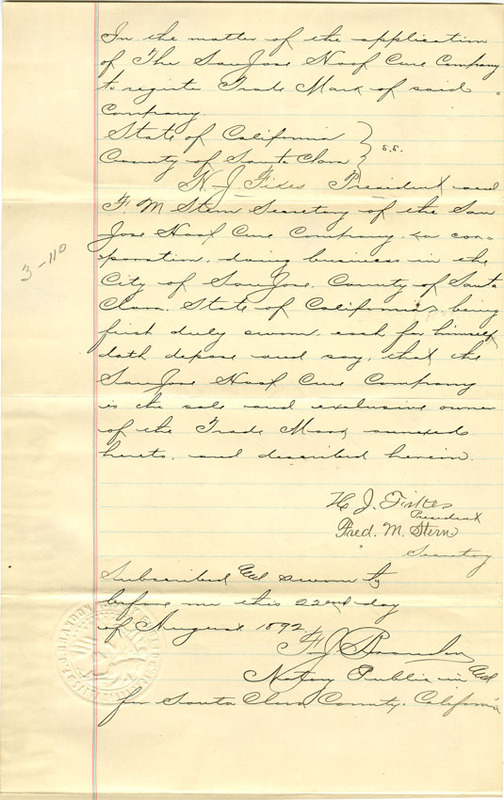 In the matter of the application
of The San Jose Hoof Cure Company
to register Trade Mark of said
Company.
State of California
County of Santa Clara } s.s.
H. J. President and
F. M. Stern Secretary of the San
Jose Hoof Cure Company, a cor-
poration, doing business in the
City of San Jose, County of Santa
Clara, State of California, being
first duly sworn, each for himself
doth depose and say, that the
San Jose Hoof Cure Company
is the sole and exclusive owner
of the Trade Mark annexed
hereto, and described herein.
3-110
H. J.
President
Fred. M. Stern
Secretary
Subscribed and sworn to
before me this 22nd day
of August 1892
F. J.
Notary Public in and
for Santa Clara County, California